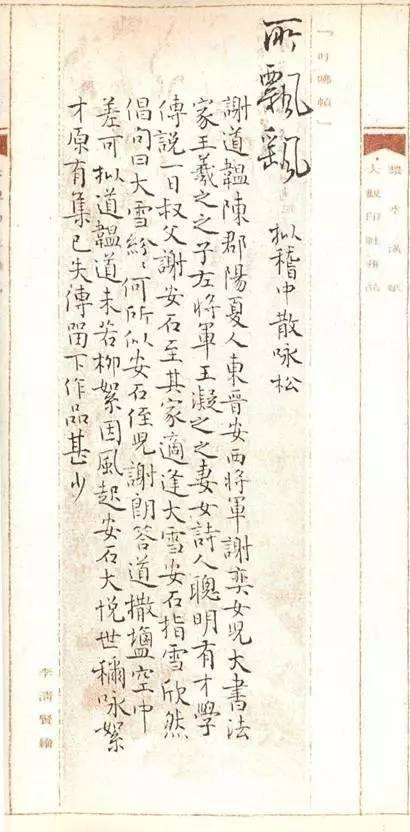 所飄颻
拟稽中散咏松
謝道韞陳郡陽夏人東晉安西將軍謝奕女兒大書法
家王羲之之子左將軍王凝之之妻女詩人聰明有才學
傳説一日叔父謝安石至其家適逢大雪安石指雪欣然
倡句曰大雪紛〻何所似安石侄兒謝朗答道撒鹽空中
差可拟道韞道未若柳絮因風起安石大悅世稱咏絮
才原有集已失傳留下作品甚少